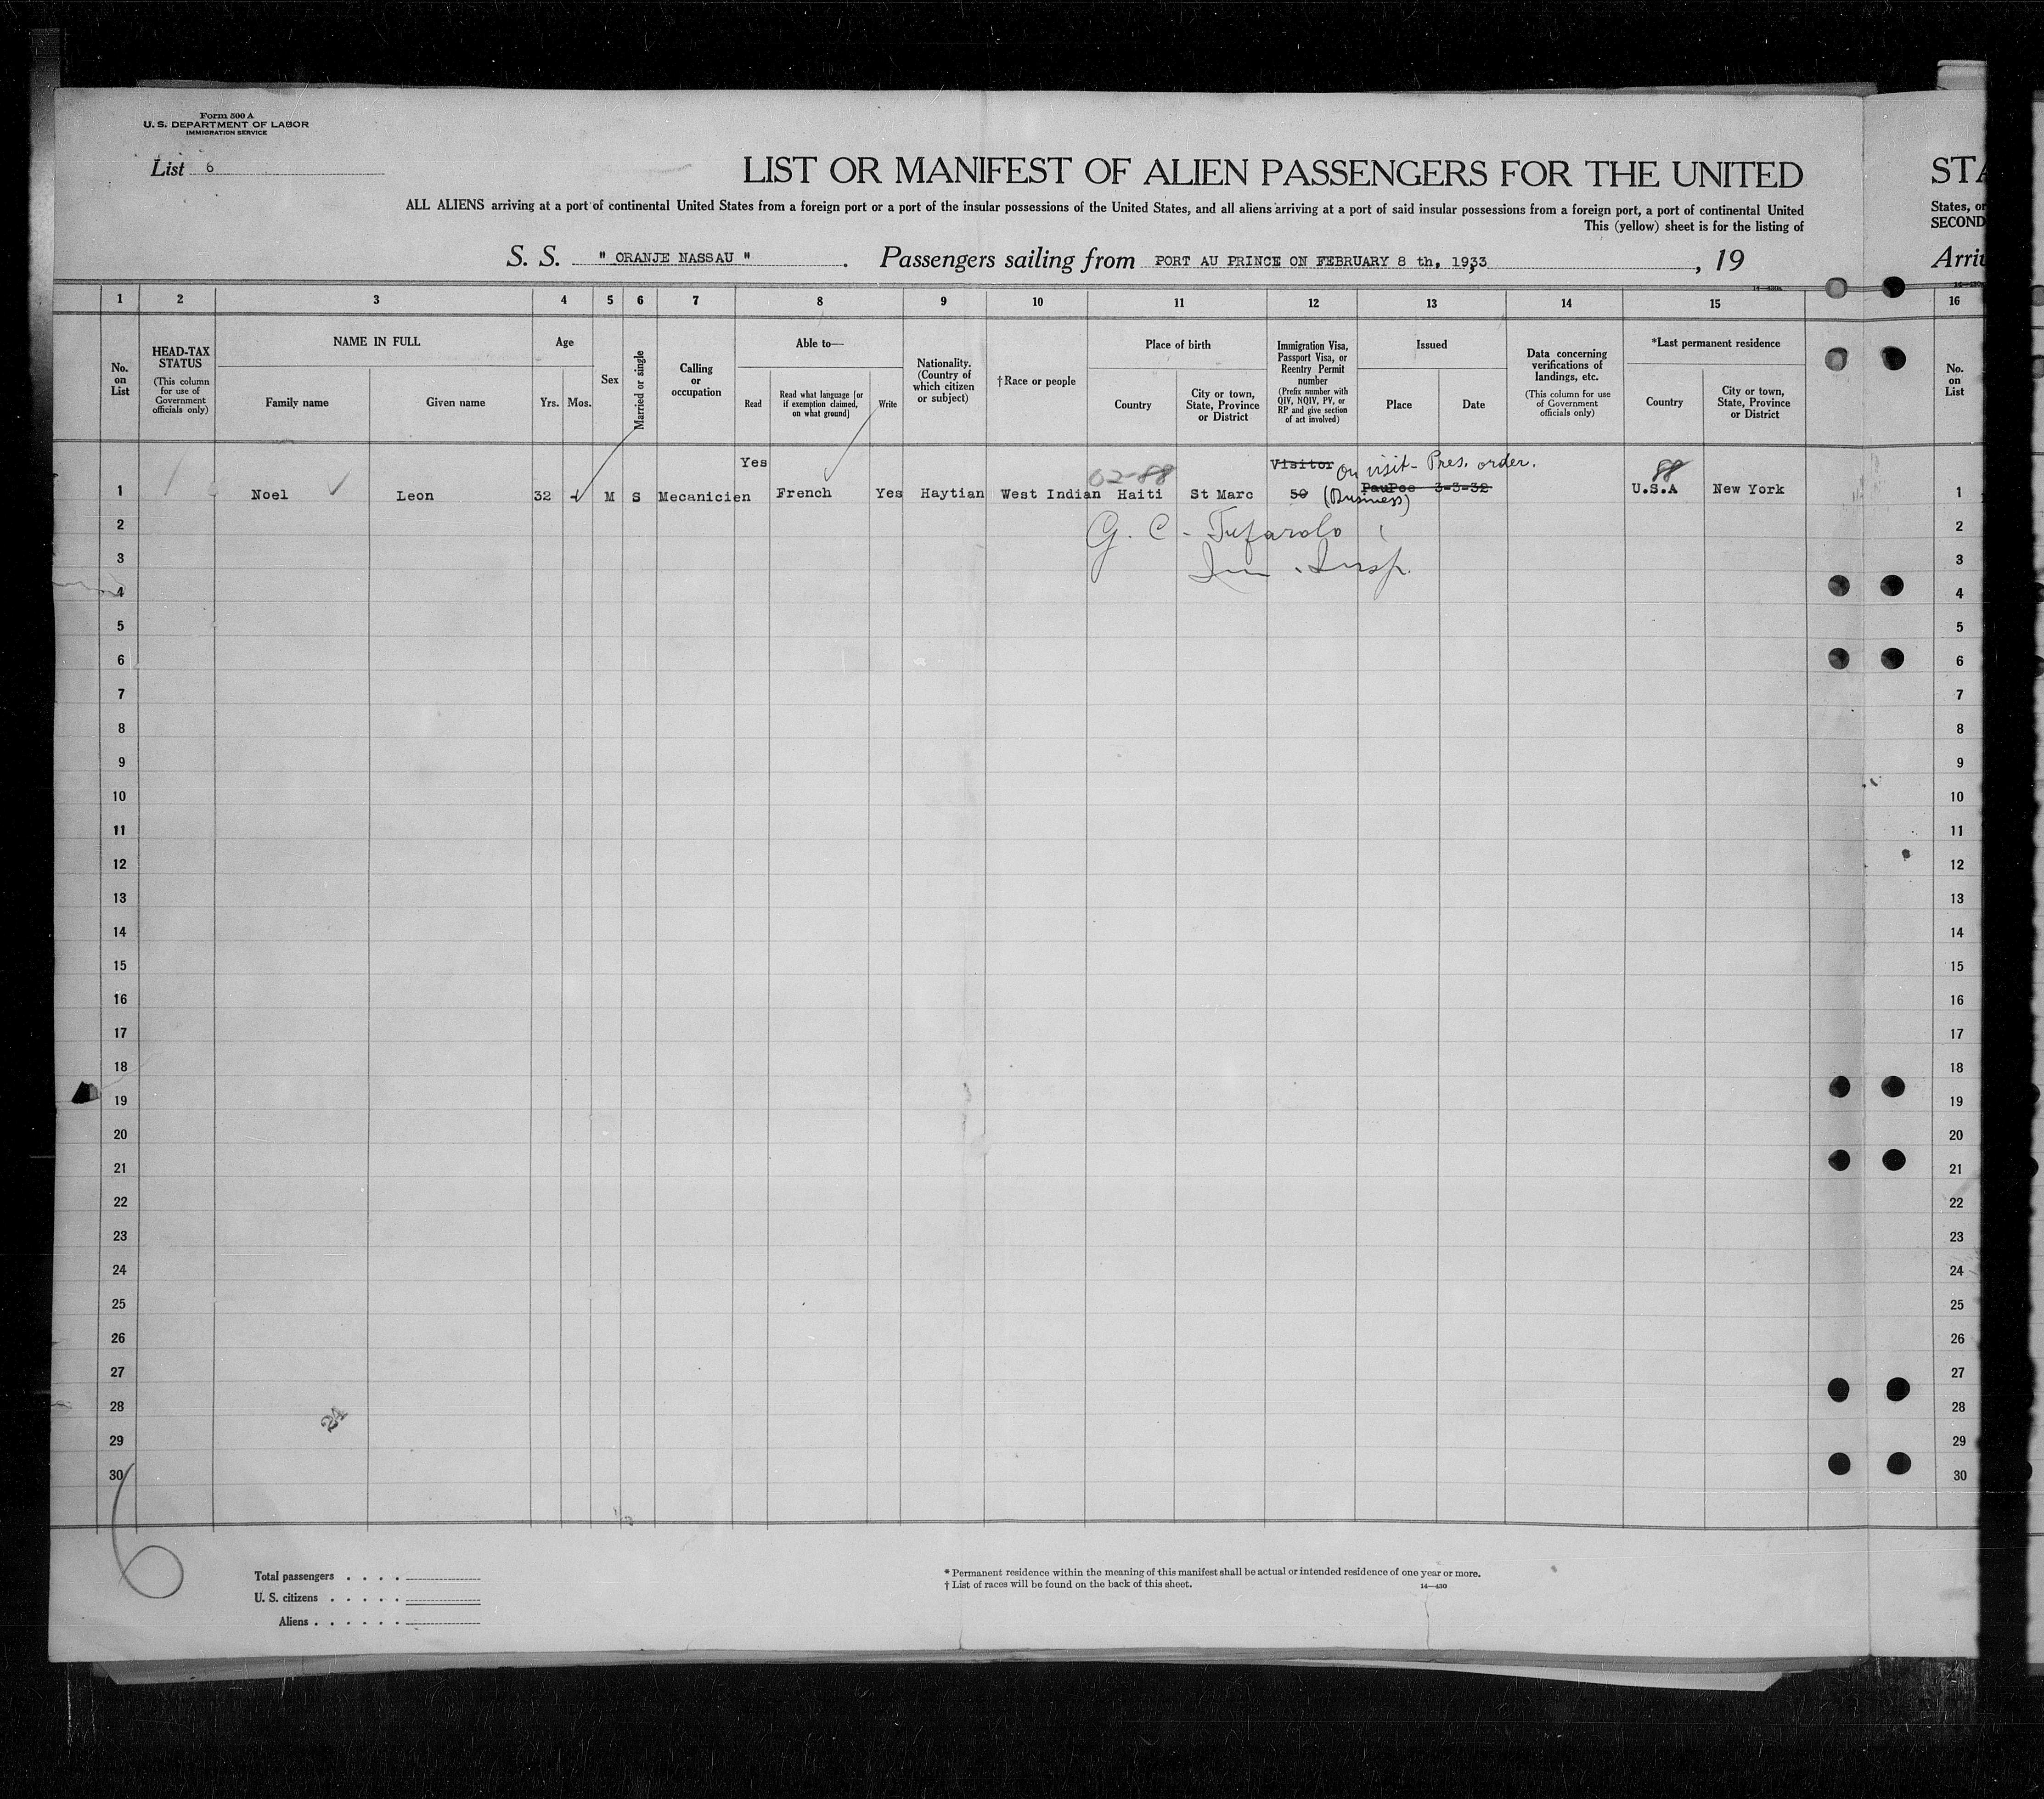 Form 500 A
U. S. DEPARTMENT OF LABOR
IMMIGRATION SERVICE
List 6
LIST OR MANIFEST OF ALIEN PASSENGERS FOR THE UNITED
ALL ALIENS arriving at a port of continental United States from a foreign port or a port of the insular possessions of the United States, and all aliens arriving at a port of said insular possessions from a foreign port, a port of continental United
This (yellow) sheet is for the listing of
S. S. " ORANJE NASSAU ". Passengers sailing from PORT AU PRINCE ON FEBRUARY 8 th, 1933, 19
STA
States, or
SECOND
Arri
1 2 3 4 5 6 7 8 9 10 11 12 13 14 15 16
No. on List
HEAD-TAX STATUS
(This column for use of Government officials only)
NAME IN FULL
Family name
Given name
Age
Yrs. Mos.
Sex
Married or single
Calling or occupation
Able to—
Read
Read what language [or if exemption claimed, on what ground]
Write
Nationality. (Country of which citizen or subject)
†Race or people
Place of birth
Country
City or town, State, Province or District
Immigration Visa, Passport Visa, or Reentry Permit number
(Prefix number with QIV, NQIV, PV, or RP and give section of act involved)
Issued
Place
Date
Data concerning verifications of landings, etc.
(This column for use of Government officials only)
*Last permanent residence
Country
City or town, State, Province or District
No. on List
Yes 62-88 Visitor On visit - Pres. order. 88
1 Noel Leon 32 M S Mecanicien French Yes Haytian West Indian Haiti St Marc 50 (Business) PauPce 3-3-32 U.S.A New York 1
2 G. C. Tufarolo 2
3 Im. Insp. 3
4 4
5 5
6 6
7 7
8 8
9 9
10 10
11 11
12 12
13 13
14 14
15 15
16 16
17 17
18 18
19 19
20 20
21 21
22 22
23 23
24 24
25 25
26 26
27 27
28 28
29 29
30 30
24
6
Total passengers . . . .
U. S. citizens . . . . .
Aliens . . . . . .
* Permanent residence within the meaning of this manifest shall be actual or intended residence of one year or more.
† List of races will be found on the back of this sheet.
14—430